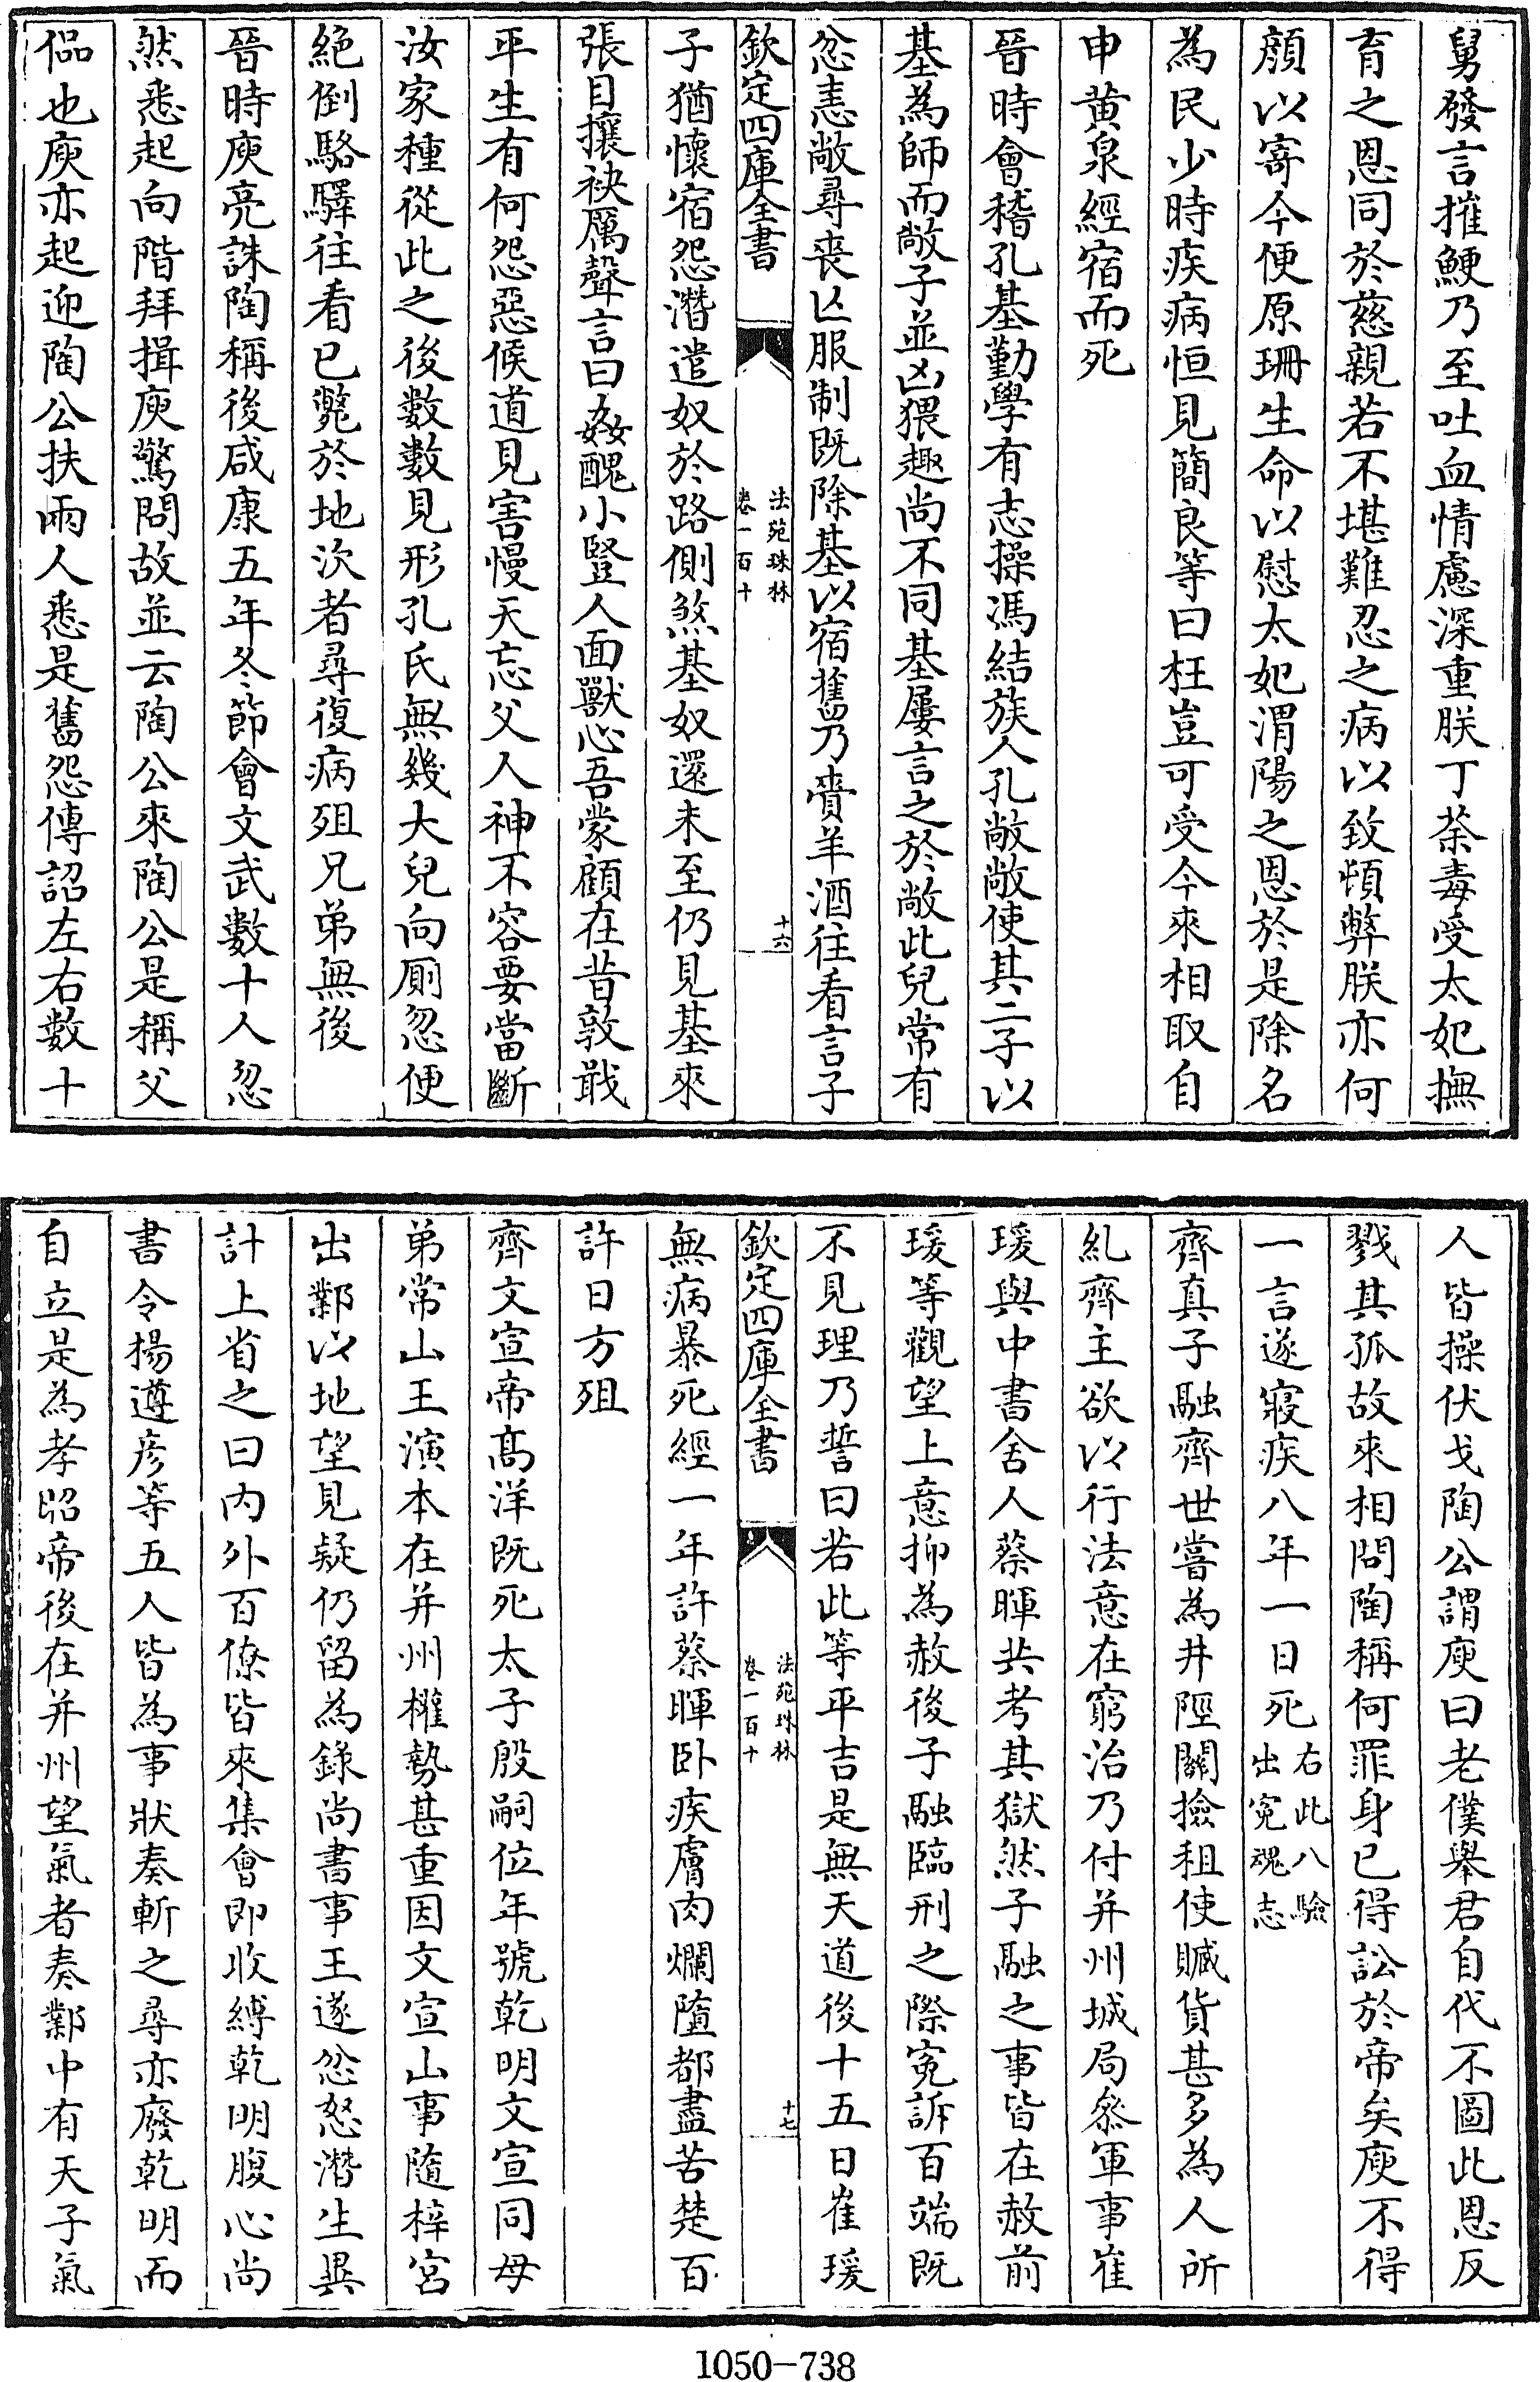 舅發言摧鯁乃至吐血情慮深重朕丁荼毒受太妃撫
育之恩同於慈親若不堪難忍之病以致頓弊朕亦何
顔以寄今便原珊生命以慰太妃渭陽之恩於是除名
為民少時疾病恒見簡良等曰枉豈可受今來相取自
申黄泉經宿而死
晉時會稽孔基勤學有志操馮結族人孔敞敞使其二子以
基為師而敞子並凶猥趣尚不同基屢言之於敞此兒常有
忿恚敞尋喪亡服制既除基以宿舊乃賫羊酒往看言子
欽定四庫全書
法苑珠林
卷一百十
十六
子猶懷宿怨潛遣奴於路側煞基奴還未至仍見基來
張目攘袂厲聲言曰姦醜小豎人面獸心吾蒙顧在昔敦戢
平生有何怨惡候道見害慢天忘父人神不容要當斷
汝家種從此之後數數見形孔氏無幾大兒向厠忽便
絶倒駱驛往看已斃於地次者尋復病殂兄弟無後
晉時庾亮誅陶稱後咸康五年冬節會文武數十人忽
然悉起向階拜揖庾驚問故並云陶公來陶公是稱父
偘也庾亦起迎陶公扶兩人悉是舊怨傳詔左右數十
人皆操伏戈陶公謂庾曰老僕舉君自代不圖此恩反
戮其孤故來相問陶稱何罪身已得訟於帝矣庾不得
一言遂寢疾八年一日死右此八驗
出寃魂志
齊真子融齊世嘗為井陘關撿租使贓貨甚多為人所
糺齊主欲以行法意在窮治乃付并州城局叅軍事崔
瑗與中書舍人蔡暉共考其獄然子融之事皆在赦前
瑗等觀望上意抑為赦後子融臨刑之際寃訴百端既
不見理乃誓曰若此等平吉是無天道後十五日崔瑗
欽定四庫全書
法苑珠林
卷一百十
十七
無病暴死經一年許蔡暉卧疾膚肉爛墮都盡苦楚百
許日方殂
齊文宣帝髙洋既死太子殷嗣位年號乾明文宣同母
弟常山王演本在并州權勢甚重因文宣山事隨梓宮
出鄴以地望見疑仍留為錄尚書事王遂忿怒潛生異
計上省之日内外百僚皆來集會即收縛乾明腹心尚
書令楊遵彦等五人皆為事狀奏斬之尋亦廢乾明而
自立是為孝昭帝後在并州望氣者奏鄴中有天子氣
1050-738